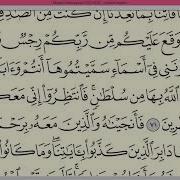 فَأْتِنَا بِمَا تَعِدُنَآ إِن كُنتَ مِنَ ٱلصَّـٰدِقِ
وَقَعَ عَلَيْكُم مِّن رَّبِّكُمْ رِجْسٌ و
ونَنِى فِىٓ أَسْمَآءٍ سَمَّيْتُمُوهَآ أَنتُمْ وَءَابَآ
ٱللَّهُ بِهَا مِن سُلْطَـٰنٍ ۚ فَٱنتَظِرُوٓا۟ إِنِّى مَعَك
رِينَ ٧١ فَأَنجَيْنَـٰهُ وَٱلَّذِينَ مَعَهُۥ بِرَحْمَ
دَابِرَ ٱلَّذِينَ كَذَّبُوا۟ بِـَٔايَـٰتِنَا ۖ وَمَا كَانُوا۟